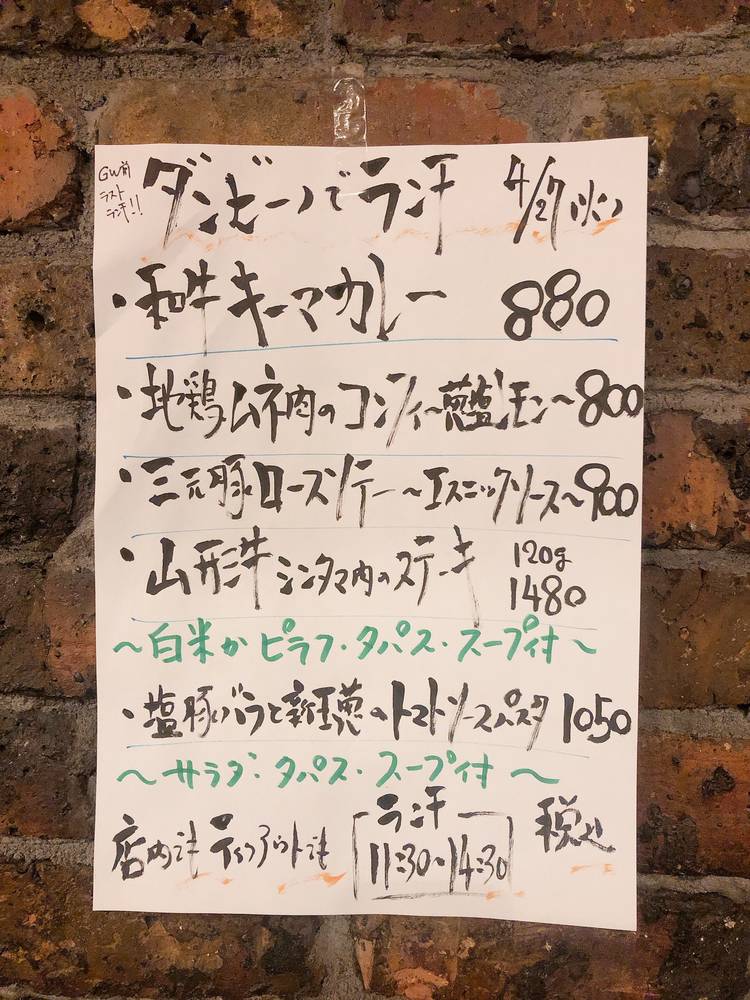 GW前
ラスト
ラ汗!!
ダンビーノでラ汗 4/27(火)
・和牛キーマカレー 880
・地鶏ムネ肉のコンフィ〜葱塩レモン〜800
・三元豚ロースソテー〜エスニックソース〜900
・山形牛シンタマ肉のステーキ 120g 1480
〜白米かピラフ・タパス・スープ付〜
・塩豚バラと新玉葱のトマトソースパスタ 1050
〜サラダ・タパス・スープ付〜
店内でも テイクアウトでも ラ汗 11:30〜14:30 税込